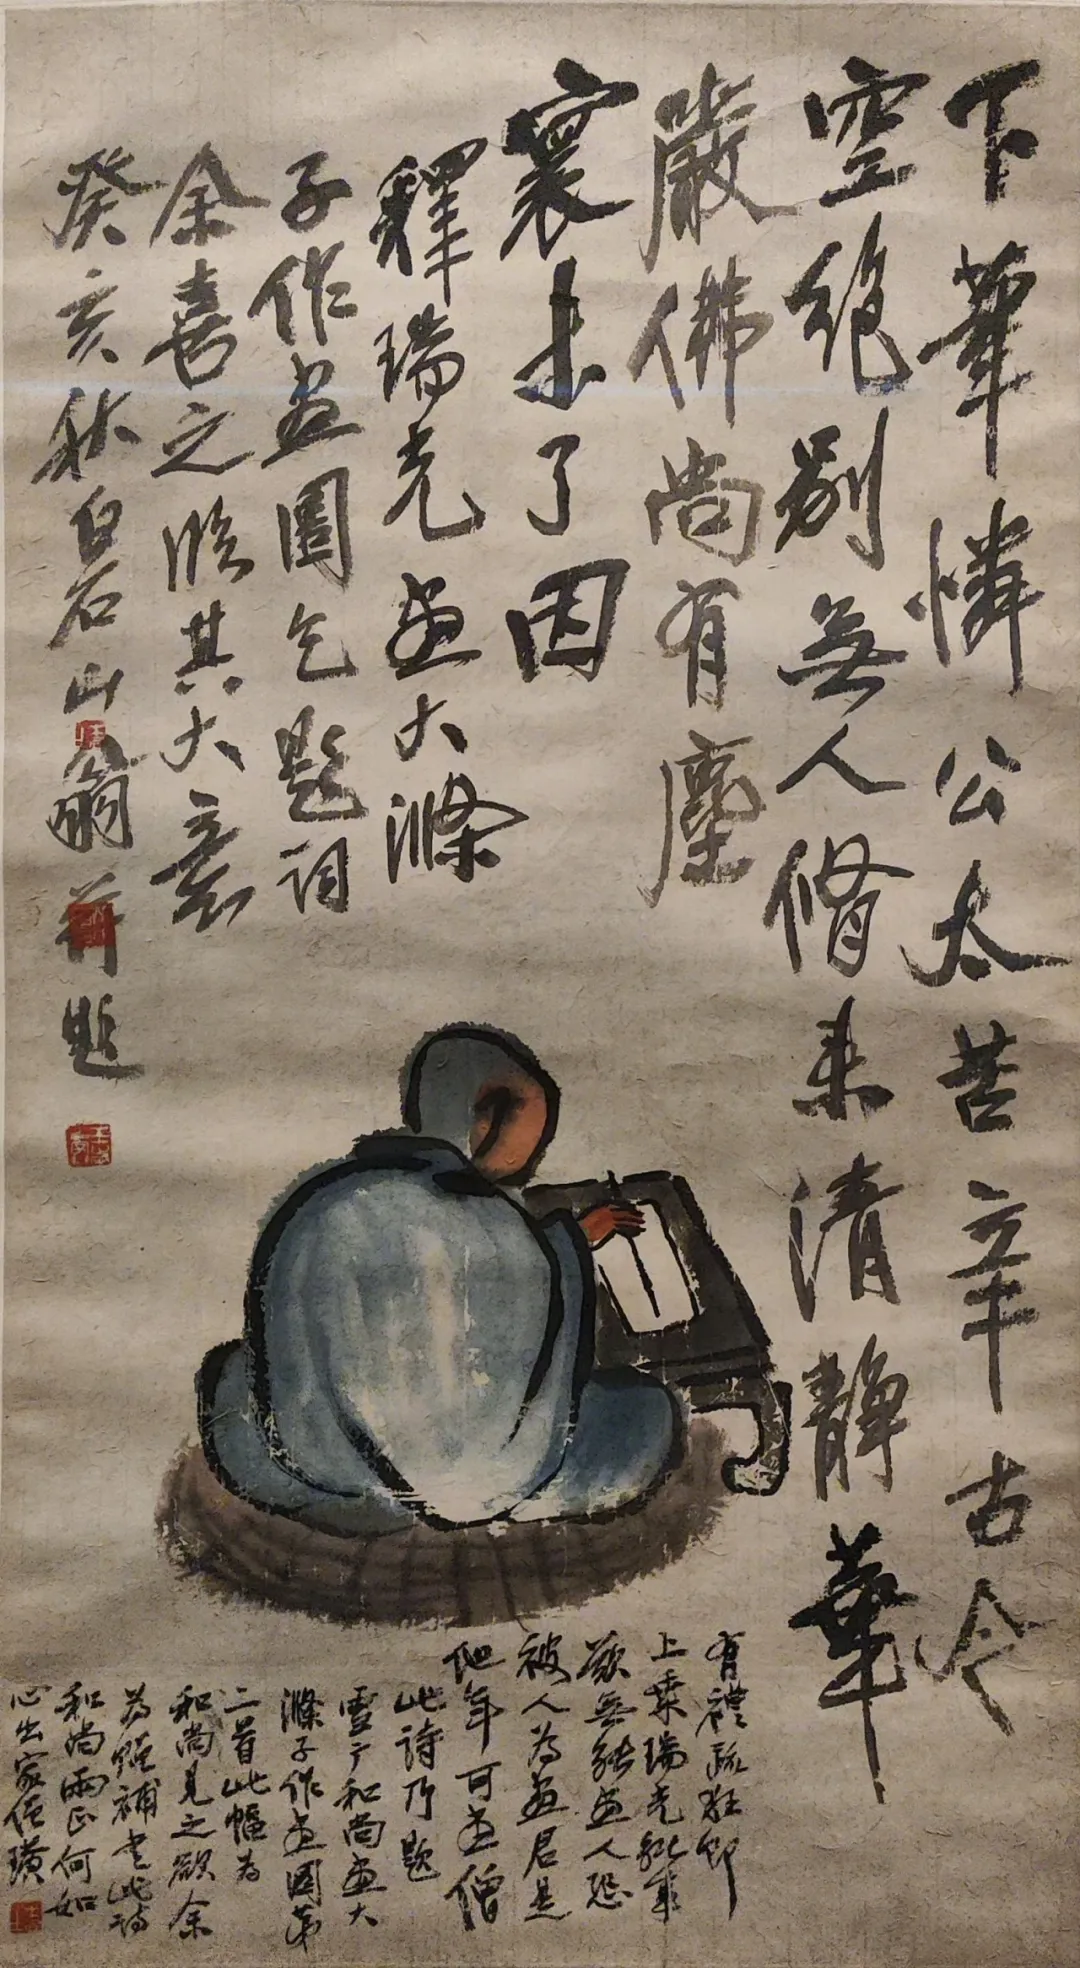 下筆憐公太苦辛古今
空絕別無人脩来清靜華
嚴佛尚有塵
寰未了因
釋瑞光畫大滌
子作畫圖乞題詞
余喜之臨其大意
癸亥秋白石山翁并題
有禮疏狂即
上乘瑞光能事
欲無能畫人恐
被人為畫君是
他年可畫僧
此詩乃題
雪厂和尚画大
滌子作畫圖弟
二首此幅為
和尚見之欲余
為贈補書此詩
和尚雨正何如
心出家僧璜